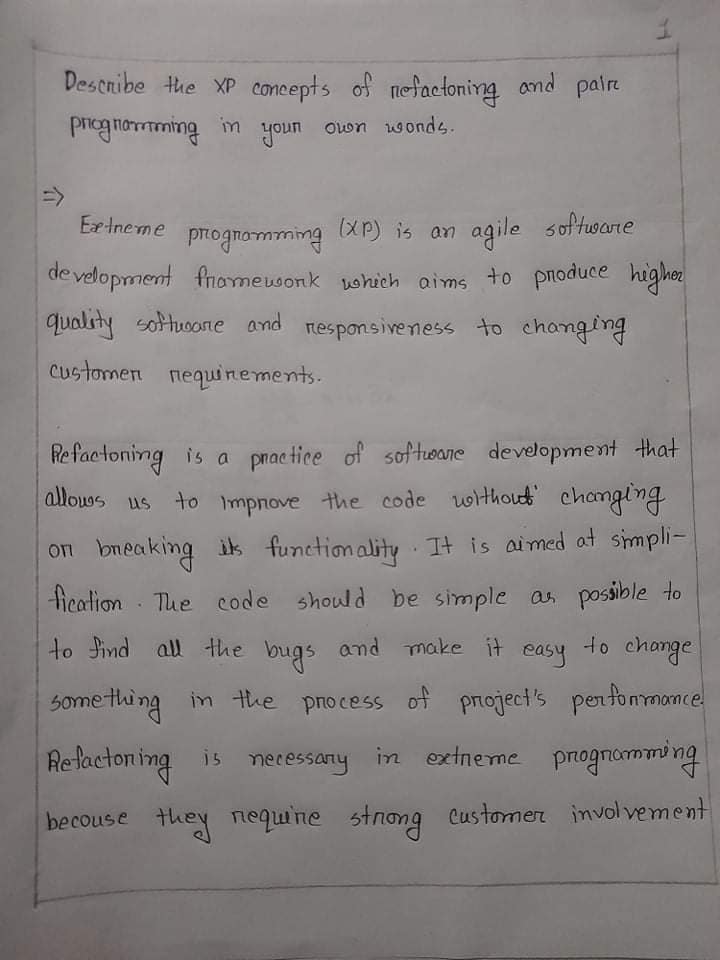 1
Describe the XP concepts of refactoring and pair
programming in your own words.
=>
Extreme programming (XP) is an agile software
development framework which aims to produce higher
quality software and responsiveness to changing
customer requirements.
Refactoring is a practice of software development that
allows us to improve the code without changing
or breaking its functionality. It is aimed at simpli-
fication. The code should be simple as possible to
to find all the bugs and make it easy to change
something in the process of project's performance.
Refactoring is necessary in extreme programming
becouse they require strong customer involvement